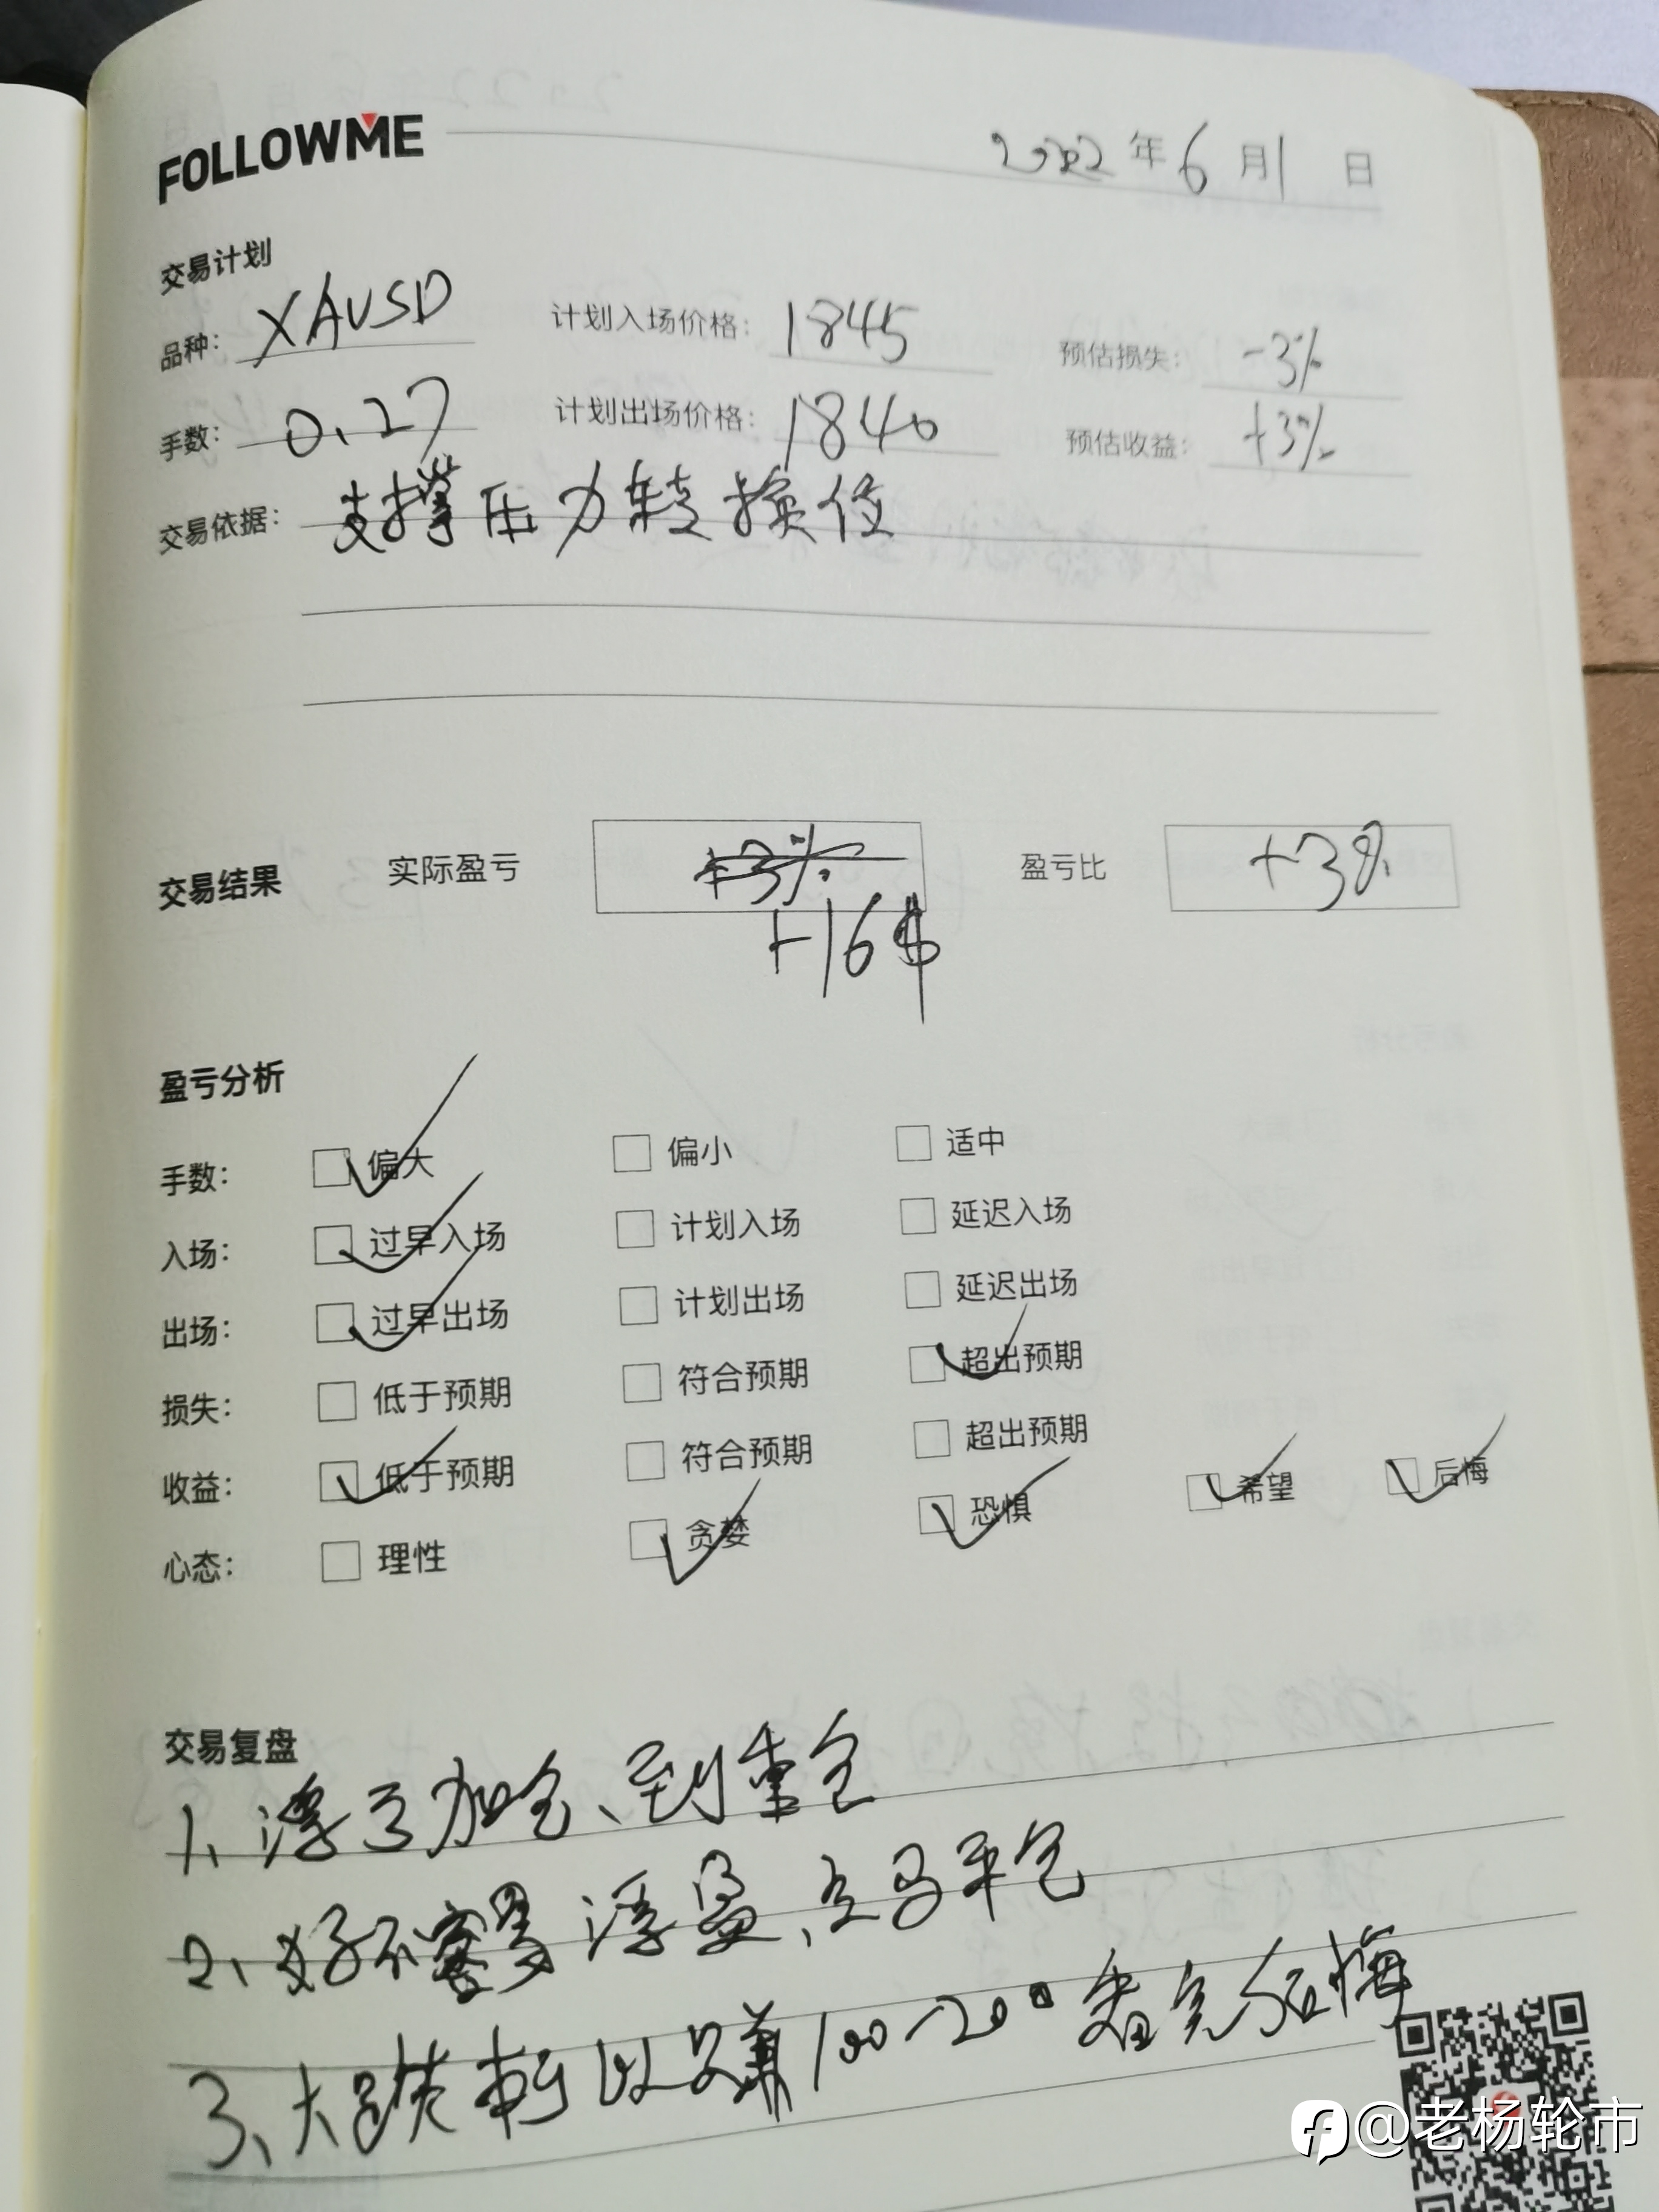 FOLLOWME
2022 年 6 月 1 日
交易计划
品种: XAUSD 计划入场价格: 1845 预估损失: -3%
手数: 0.27 计划出场价格: 1840 预估收益: +3%
交易依据: 支撑压力转换位
交易结果 实际盈亏 +3% 盈亏比 +3%
+16$
盈亏分析
手数: 偏大 偏小 适中
入场: 过早入场 计划入场 延迟入场
出场: 过早出场 计划出场 延迟出场
损失: 低于预期 符合预期 超出预期
收益: 低于预期 符合预期 超出预期
心态: 理性 贪婪 恐惧 希望 后悔
交易复盘
1、浮亏加仓、到重仓
2、好不容易浮盈、立马平仓
3、大跌本可以只赚100-200 看完后悔
@老杨轮市